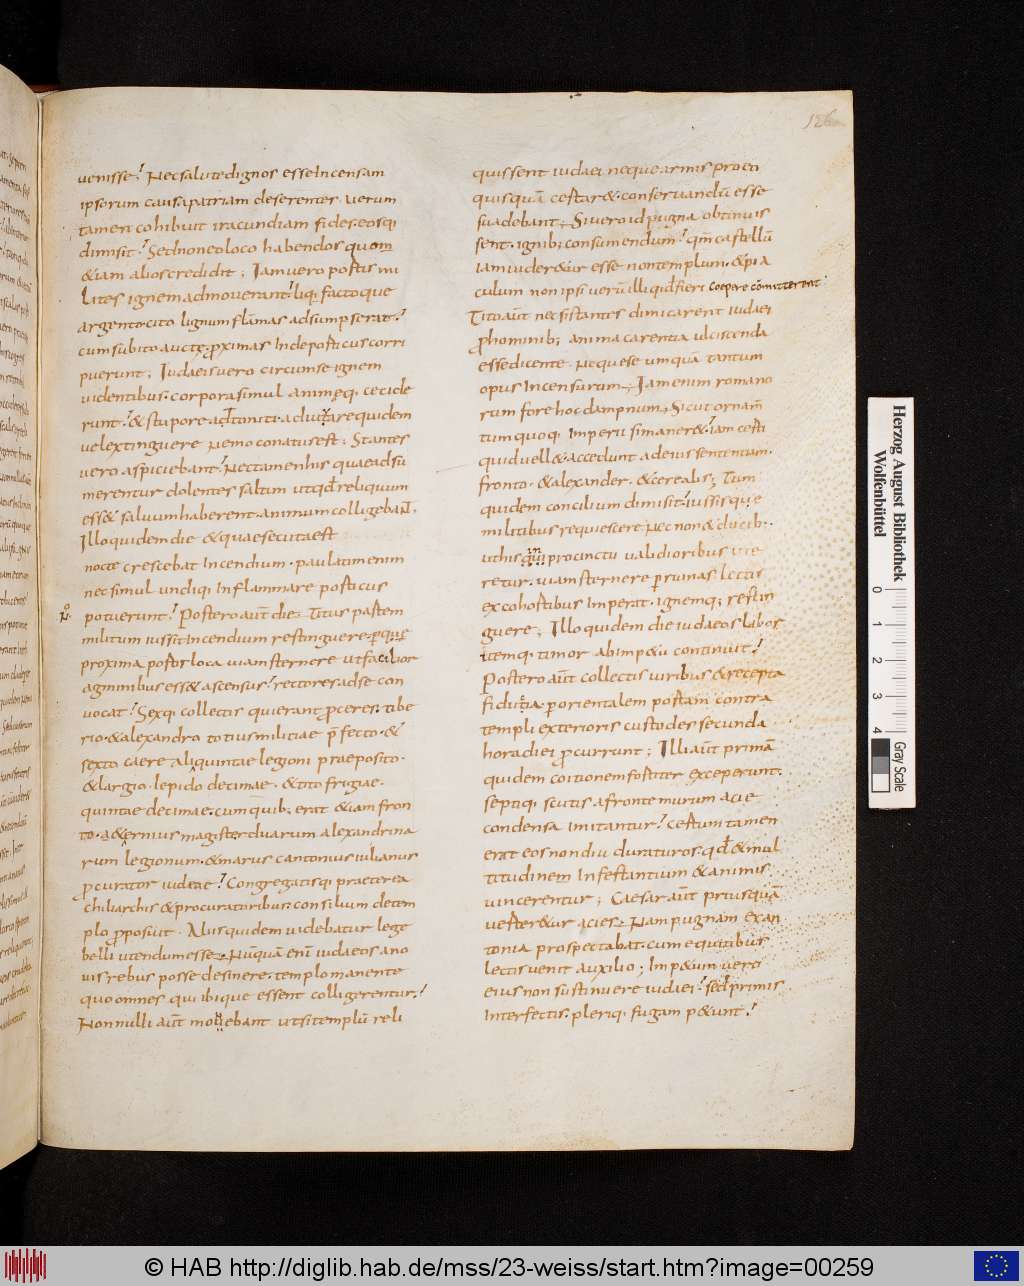 126
uenisse? Nec salute dignos esse Incensam
ipsorum causa patriam deserentes. uerum
tamen cohibuit iracundiam fides. eosq;
dimisit? Sed non eo loco habendos quom
&iam alios credidit; Iam uero postis mi
lites ignem admouerant? liq;facto que
argento. cito lignum flāmas adsumpserat?
cum subito auctę. proximas Inde posticus corri
puerunt; Iudaeis uero circumse ignem
uidentibus. corpora simul animeq; cecide
runt? & stupore adtoniti. adiutare quidem
uel extinguere nemo conatus est; Stantes
uero aspiciebant? Nec tamen his quae adsū
merentur dolentes saltim ut qđ reliquum
ess& saluum haberent. animum colligebant.
Illo quidem die & quae secuta est
nocte crescebat Incendium. paulatim enim
nec simul undiq; Inflammare posticus
potuerunt? Postero aūt die. Titus partem
militum iussit Incendium restinguere. perque
proxima portis loca uiam sternere ut facilior
agminibus ess& ascensus? rectores adse con
uocat? Sexq; collectis qui erant proceres. tibe
rio. & alexandro totius militiae p̄fecto. &
sexto caere ali quintae legioni praeposito.
& largio. lepido decimae. & tito frigiae.
quintae decimae. cum quib; erat & iam fron
to. a&ernius magister duarum alexandrina
rum legionum. & marus c antonius iulianus
procurator iudeae? Congregatisq; praeterea
chiliarchis & procuratoribus. consilium detem
plo proposuit. Aliis quidem uidebatur lege
belli utendum esse. Nūquā enī iudaeos a no
uis rebus posse desinere. templo manente
quo omnes qui ibique essent colligerentur?
Nonnulli aūt mouebant ut si templū reli
quissent iudaei neque armis pro eo
quisquā certar& conseruandū esse
suadebant; Si uero id pugna obtinuis
sent. ignib; consumendum? qm̄ castellū
iam uider&ur esse non templum. & pia
culum non ipsi uerū illi qui id fieri coepere cōmitterent
Tito aūt nec si stantes dimicarent iudaei
pro hominib; anima carentia ulciscenda
esse dicente. Neque se umquā tantum
opus Incensurum; Iam enim romano
rum fore hoc dampnum. Sicut ornam̄
tum quoq; Imperii si maner&. iam certi
quid uell& accedunt ad eius sententiam.
fronto. & alexander. & cerealis; Tum
quidem concilium dimisit? iussisque
militibus requiescere nec non & ducib.
ut his qui in procinctu ualidioribus ute
retur. uiam sternere per ruinas lectis
ex cohortibus Imperat. ignemq; restin
guere; Illo quidem die iudaeos labor
itemq; timor ab imp&u continuit?
Postero aūt collectis uiribus & recepta
fiducia. per orientalem portam contra
templi exterioris custodes secunda
hora diei procurrunt; Illi aūt primā
quidem coitionem fortiter exceperunt.
septiq; scutis a fronte murum acie
condensa Imitantur? Certum tamen
erat eos non diu duraturos. qđ & mul
titudinem Infestantium & animis
uincerentur; Caesar aūt priusquā
uerter&ur acies. Nam pugnam ex an
tonia prospectabat. cum equitibus
lectis uenit auxilio; Imp&um uero
eius non sustinuere iudiei? sed primis
Interfectis. pleriq; fugam p&unt?
Herzog August Bibliothek
Wolfenbüttel
0 1 2 3 4
Gray Scale
© HAB http://diglib.hab.de/mss/23-weiss/start.htm?image=00259